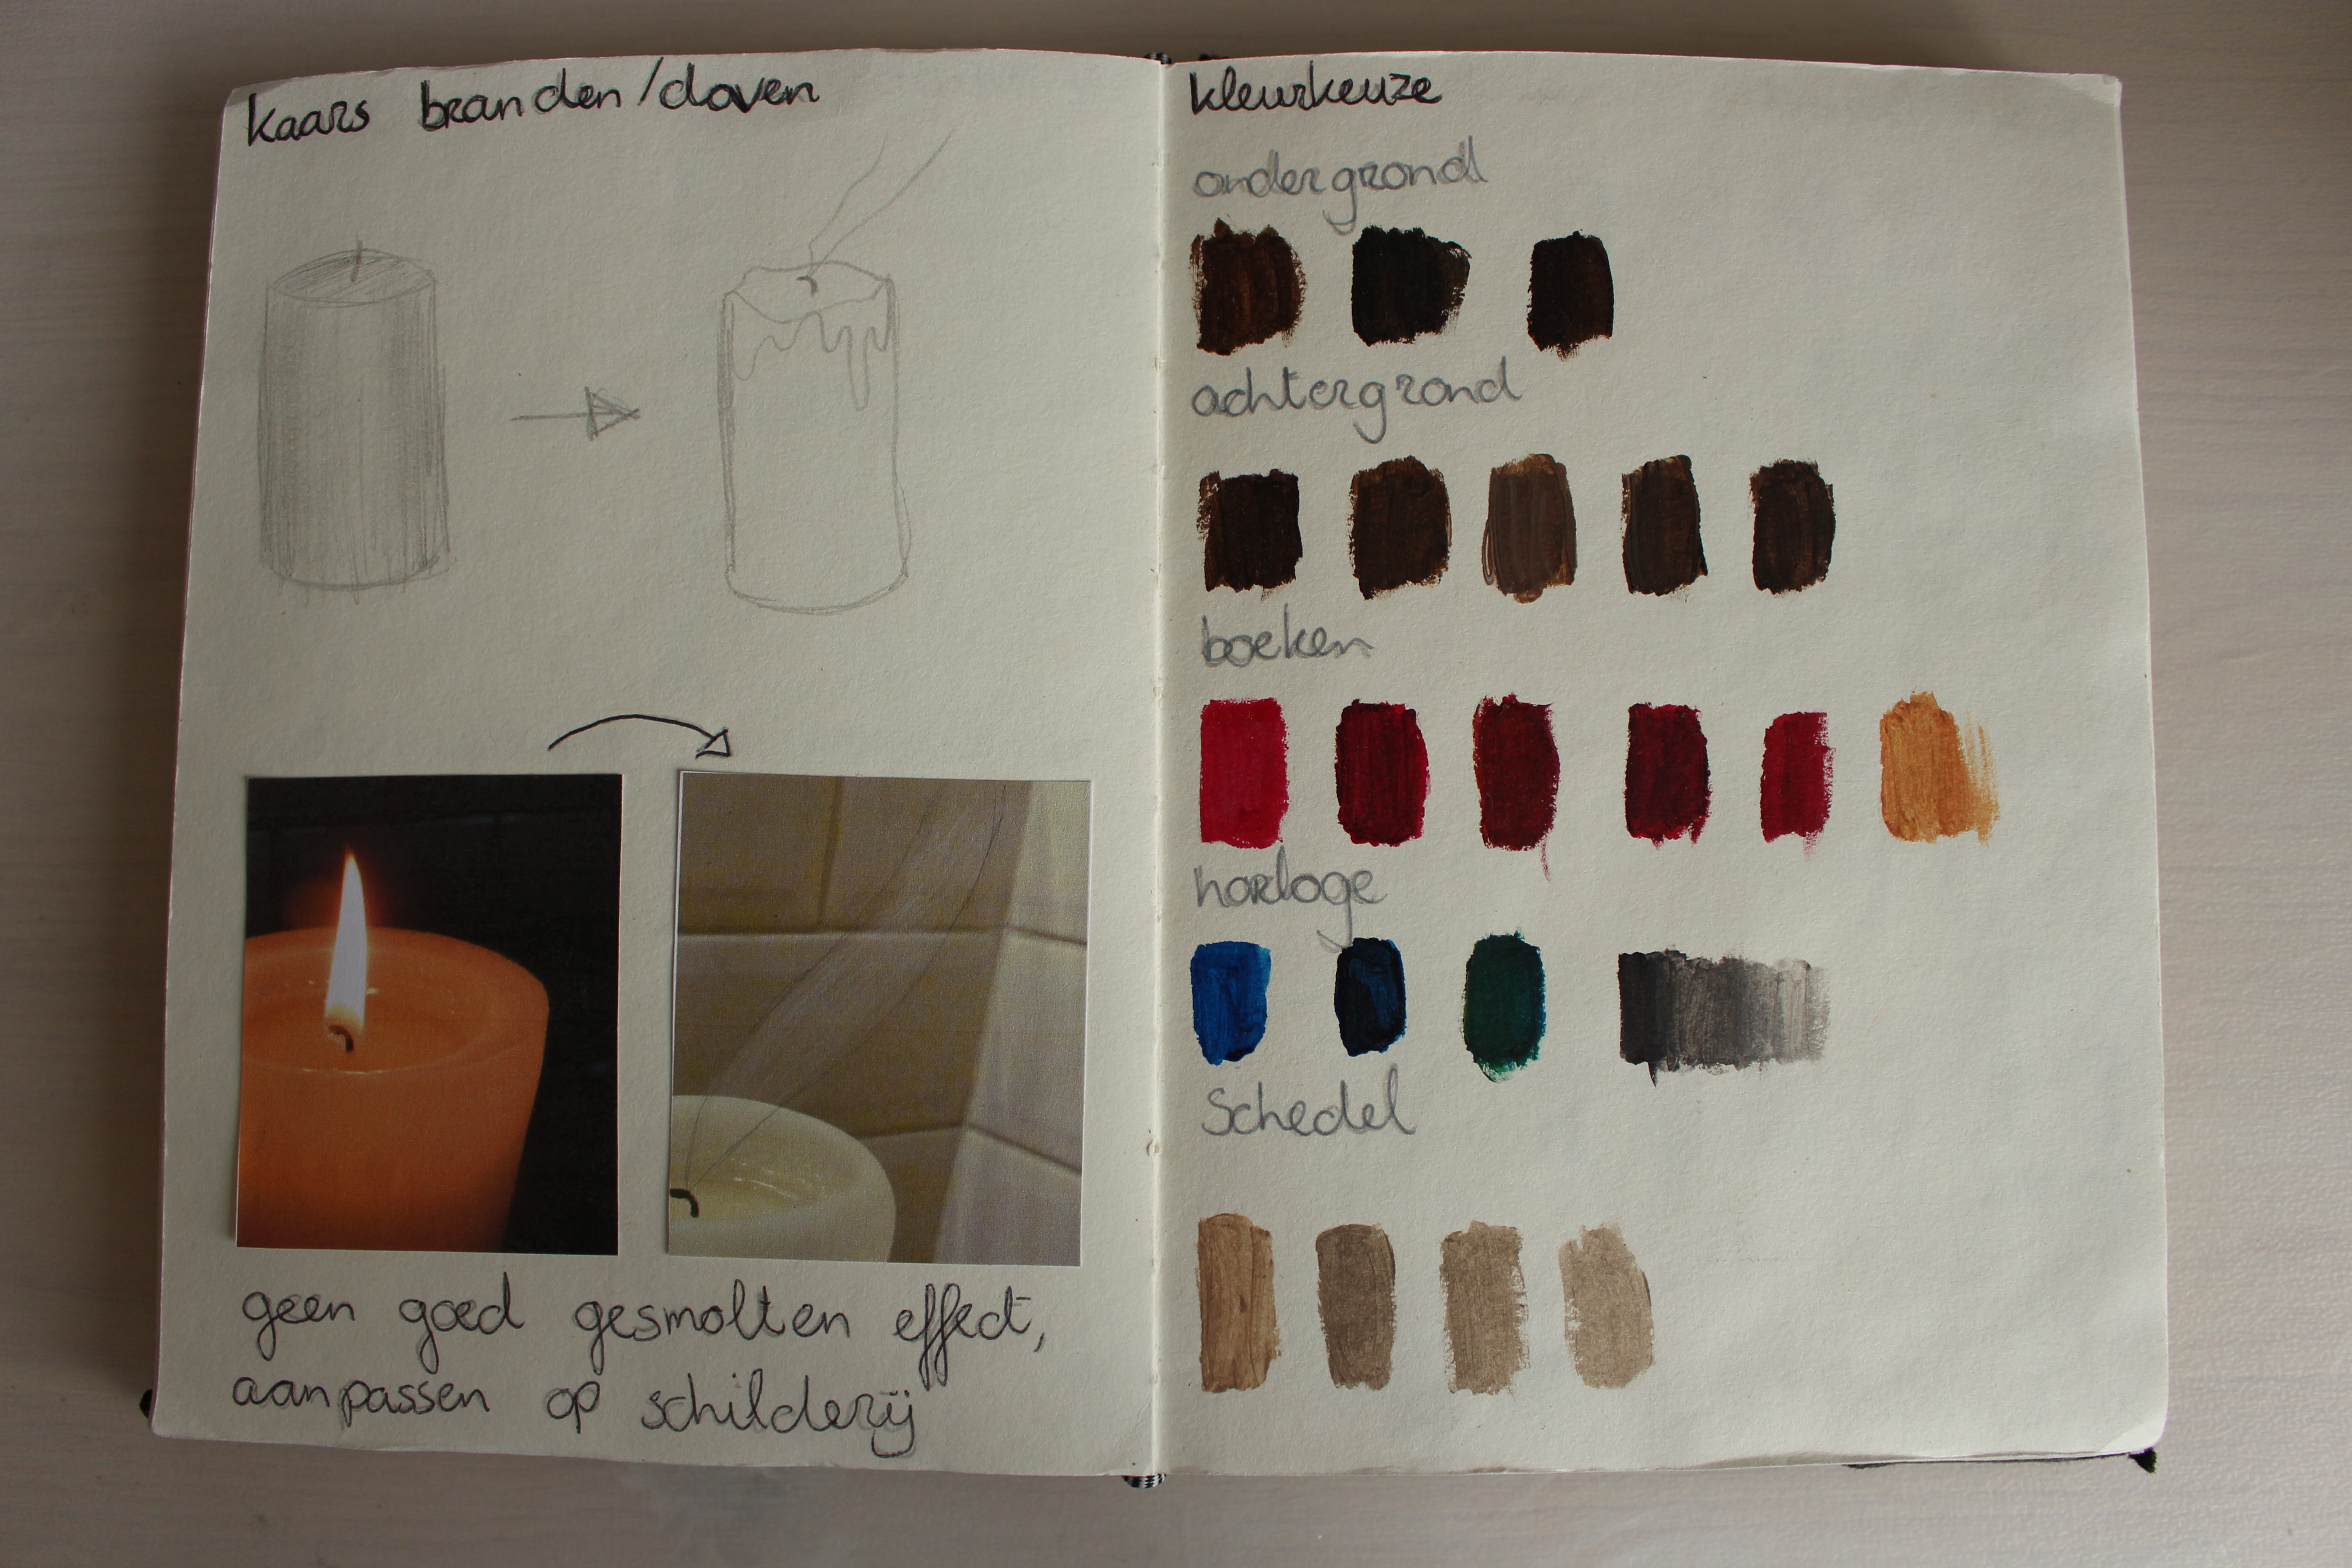 kaars branden/doven
geen goed gesmolten effect,
aanpassen op schilderij
kleurkeuze
ondergrond
achtergrond
boeken
horloge
Schedel